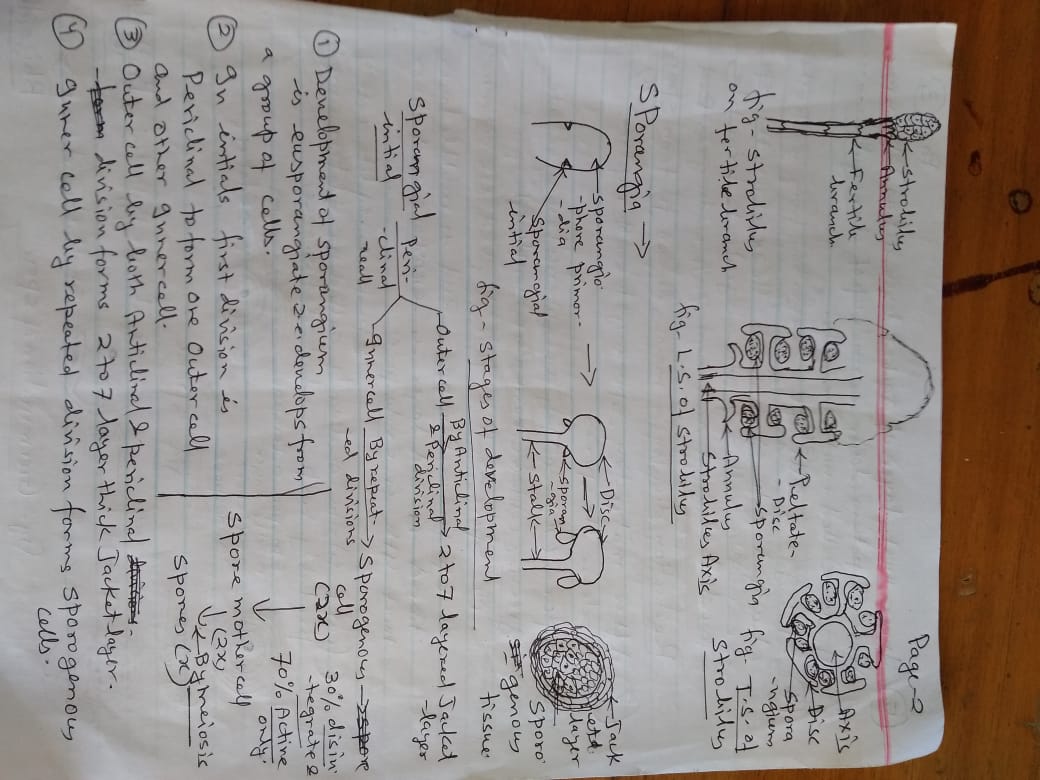 Page-2
Strobilus
Annulus
Fertile
branch
fig- Strobilus
on fertile branch
Peltate
- Disc
Sporangia
Annulus
Strobilus Axis
fig- L.S. of Strobilus
Axis
Disc
Spora
-ngium
fig- T.S. of
Strobilus
Sporangia →
Sporangio
-phore primor-
-dia
Sporangial
initial
Disc
Sporan
-gia
Stalk
Jack
-etd
layer
Sporo
-genous
tissue
fig- Stages of development
Sporangial Peri-
initial -clinal
Outer cell By Anticlinal & Periclinal division → 2 to 7 layered Jacket
-layer
Inner cell By repeat- → Sporogenous →
-ed divisions cell
(2x) 30% disin
-tegrate &
70% Active
only.
Spore mother cell
(2x)
↓ ← By meiosis
Spores (x)
① Development of sporangium
is eusporangiate i.e. develops from
a group of cells.
② In intials first division is
Periclinal to form one Outer cell
and other Inner cell.
③ Outer cell by both Anticlinal & periclinal
division forms 2 to 7 layer thick Jacket layer.
④ Inner cell by repeated division forms Sporogenous
cells.